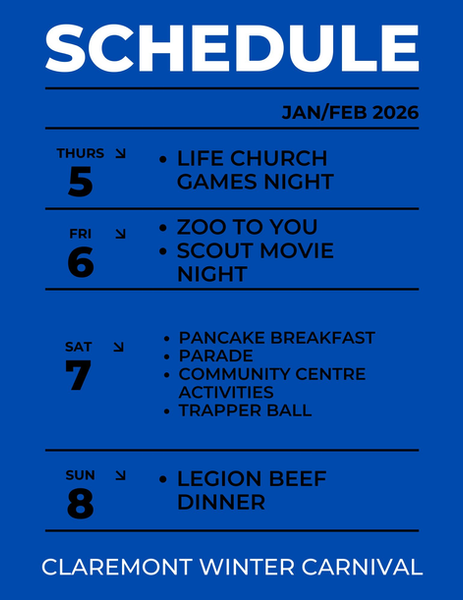 SCHEDULE
JAN/FEB 2026
THURS
5
• LIFE CHURCH
GAMES NIGHT
FRI
6
• ZOO TO YOU
• SCOUT MOVIE
NIGHT
SAT
7
• PANCAKE BREAKFAST
• PARADE
• COMMUNITY CENTRE
ACTIVITIES
• TRAPPER BALL
SUN
8
• LEGION BEEF
DINNER
CLAREMONT WINTER CARNIVAL